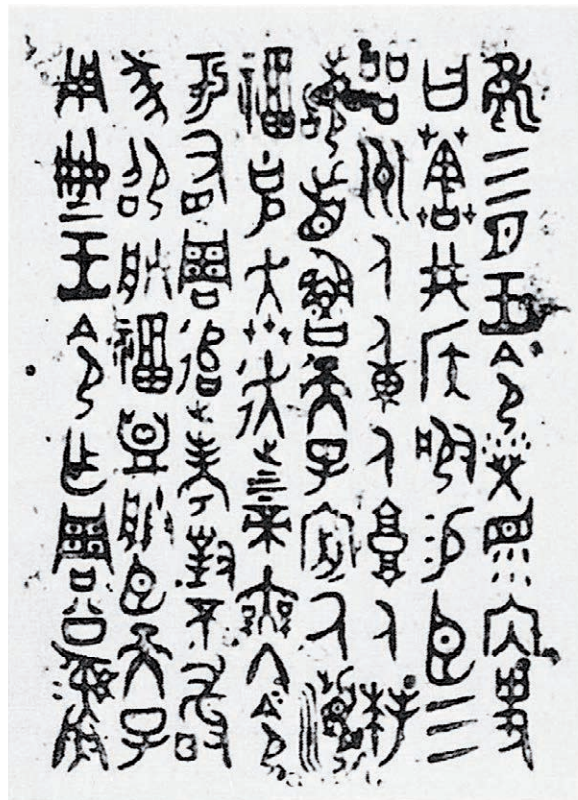 隹三月王令榮眔內史
曰𦎫井侯服易臣三
品州人重人𩫏人拜
稽首魯天子𢓊厥瀕
福克奔走上下帝無冬令
于有周追考對不敢
㒸卲朕福盟朕臣天子
用典王令乍周公彝